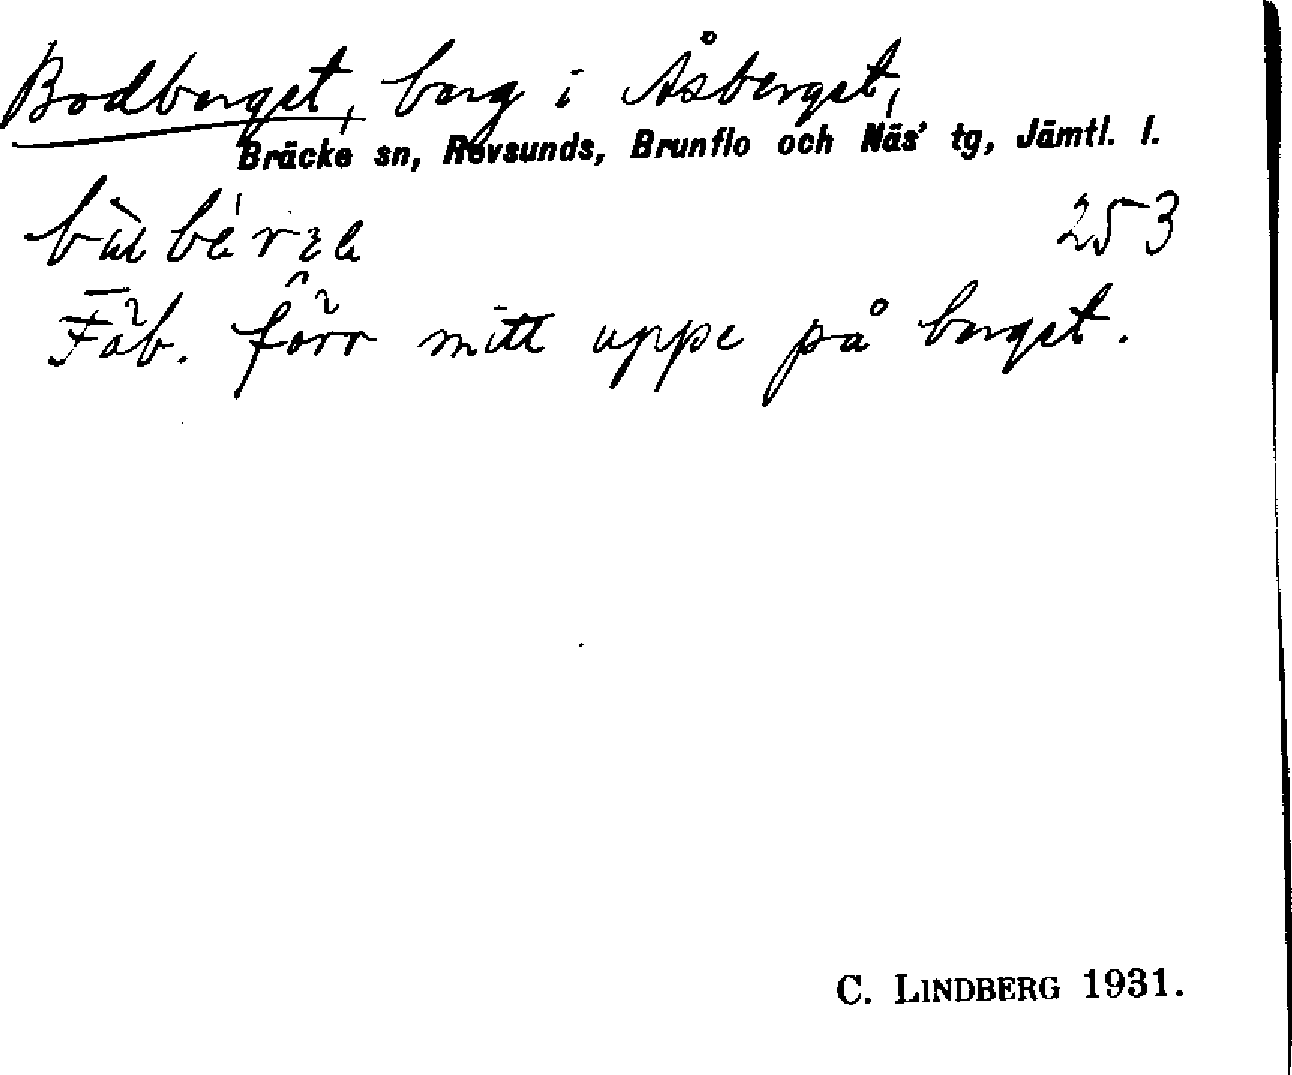 Bodberget, berg i Åsberget,
Bräcke sn, Revsunds, Brunflo och Näs' tg, Jämtl. l.
253
Fäb. förr mitt uppe på berget.
C. LINDBERG 1931.